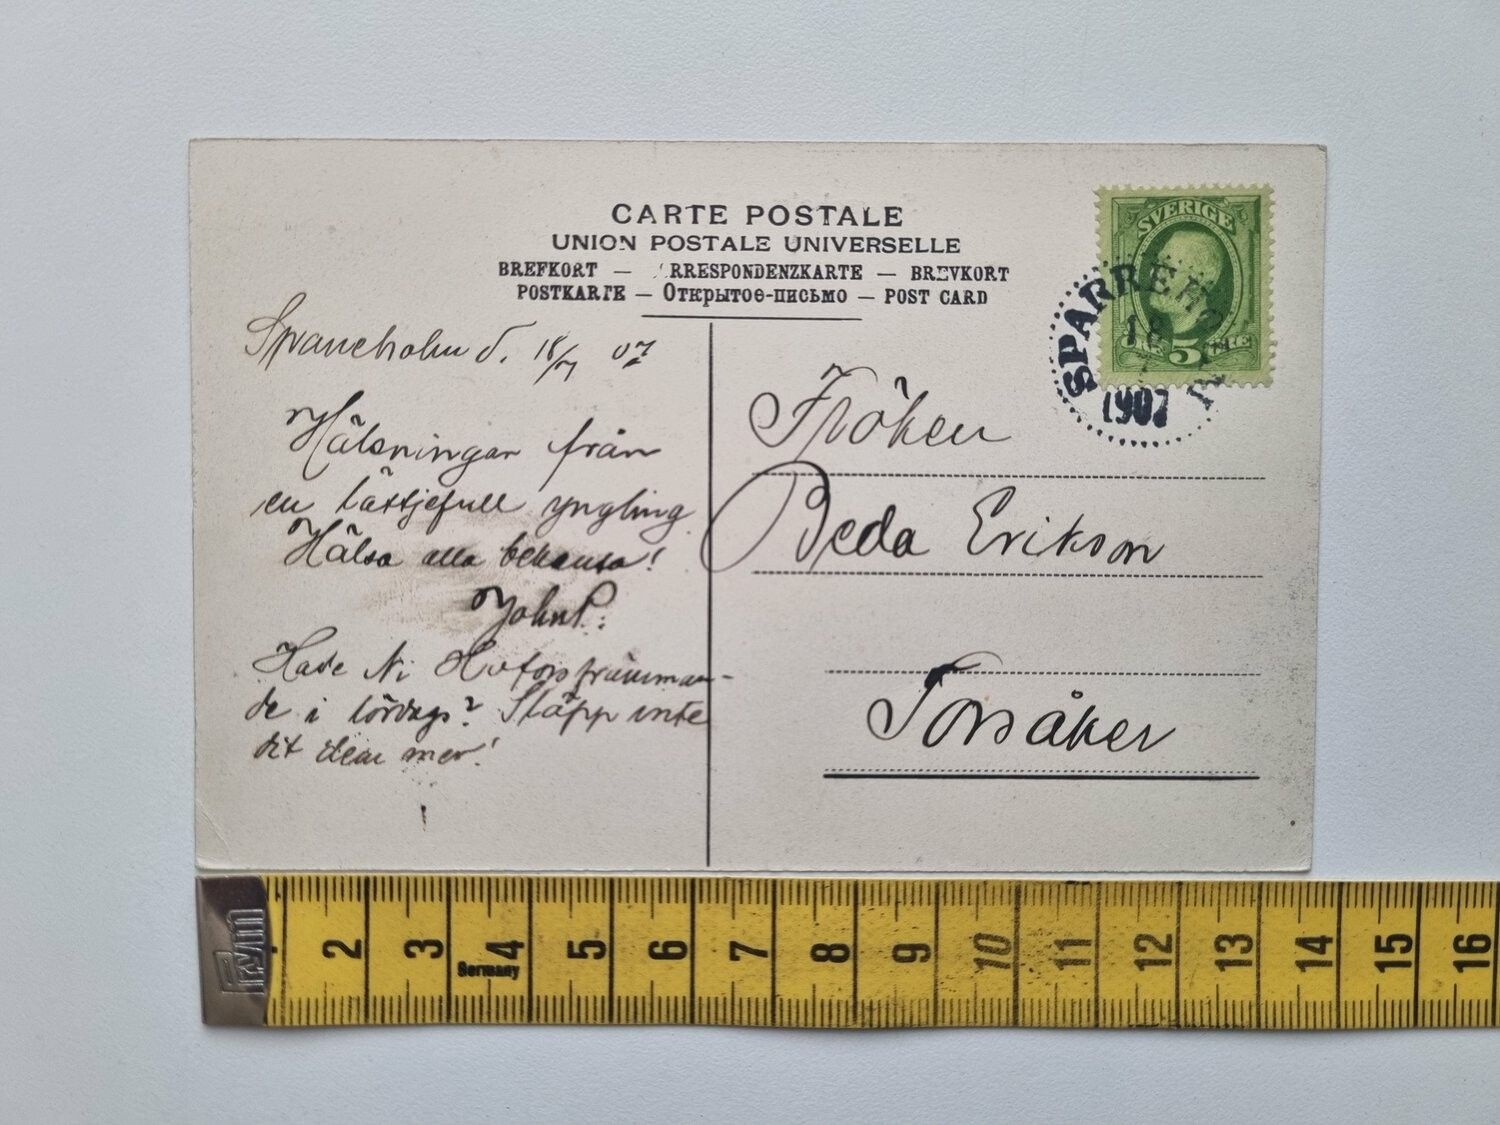 CARTE POSTALE
UNION POSTALE UNIVERSELLE
BREFKORT — RRESPONDENZKARTE — BREVKORT
POSTKARTE — Открытое-письмо — POST CARD
SVERIGE
ÖRE 5 ÖRE
SPARREHOLM
18
1907
Sparreholm d. 18/7 07
Hälsningar från
en lättjefull yngling
Hälsa alla bekanta!
John P.
Hade Ni Hofors främman-
de i lördags? Släpp inte
dit dem mer!
Fröken
Beda Erikson
Torsåker
2 3 4 5 6 7 8 9 10 11 12 13 14 15 16
Germany